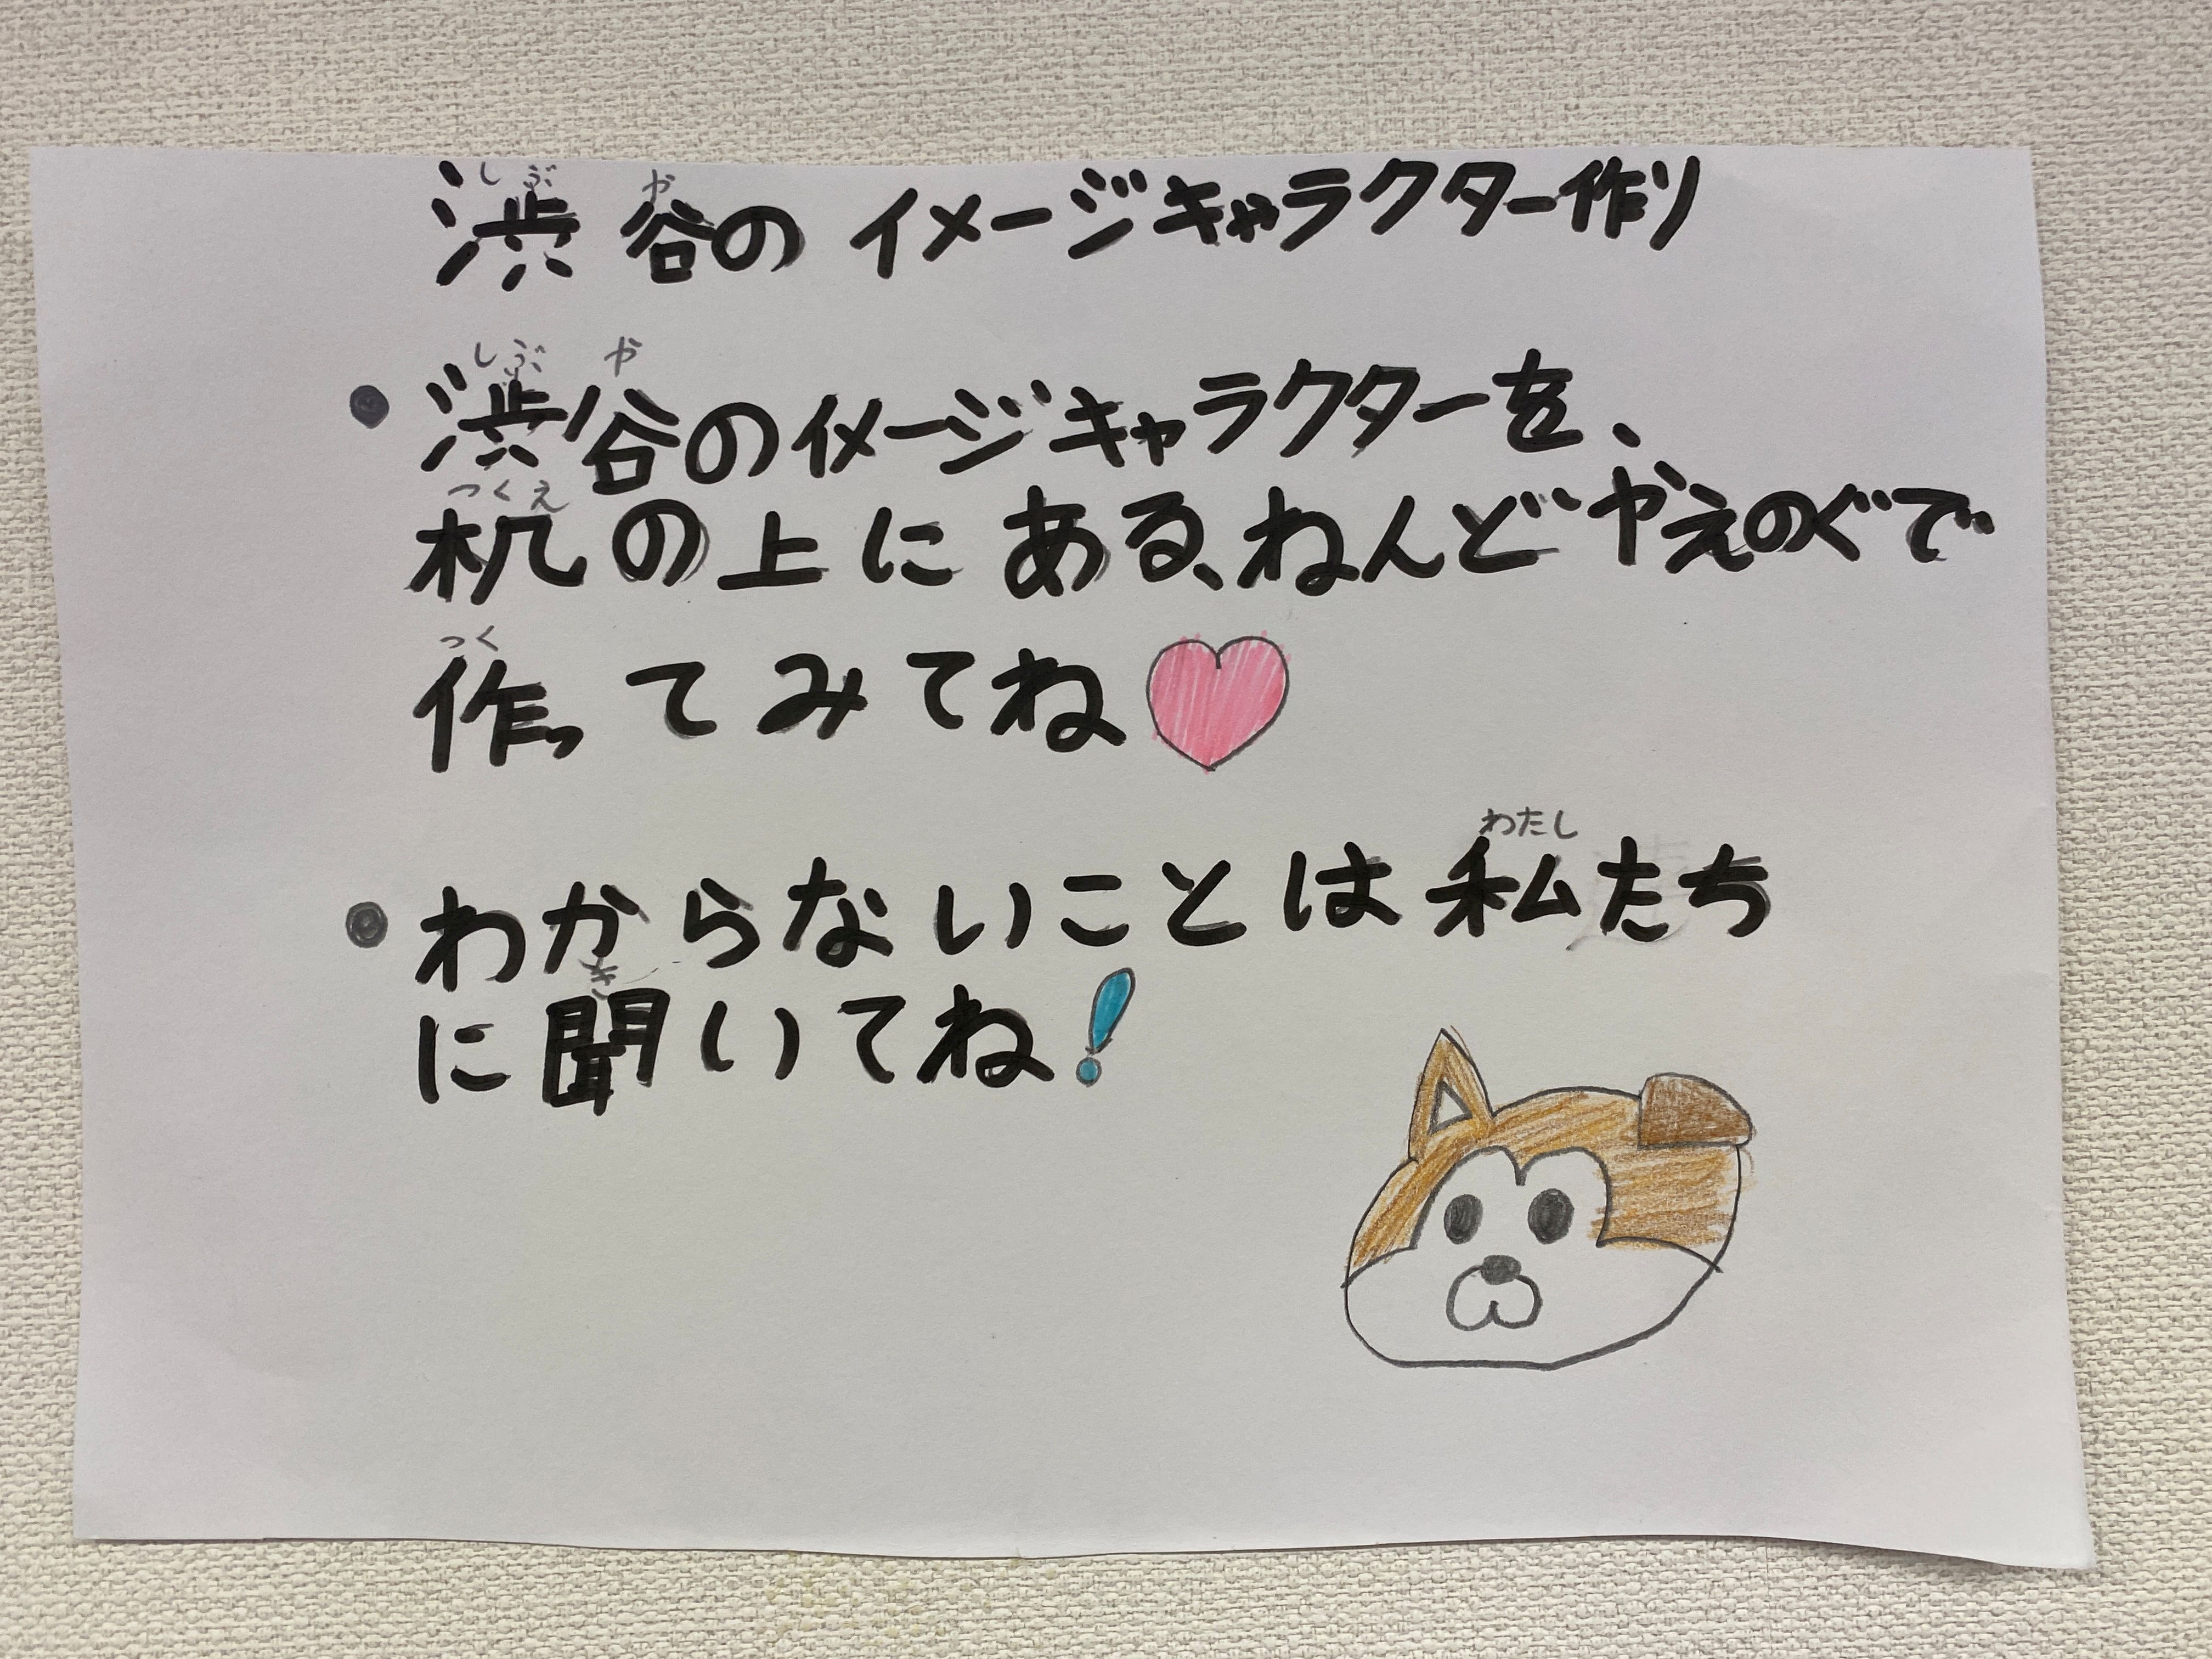 渋谷のイメージキャラクター作り
・渋谷のイメージキャラクターを、
机の上にある、ねんどやえのぐで
作ってみてね♥
・わからないことは私たち
に聞いてね!